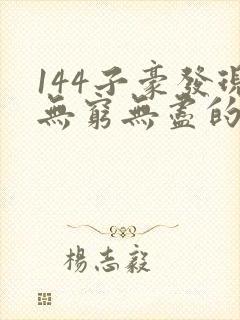 144子豪發現
無窮無盡的
楊志毅